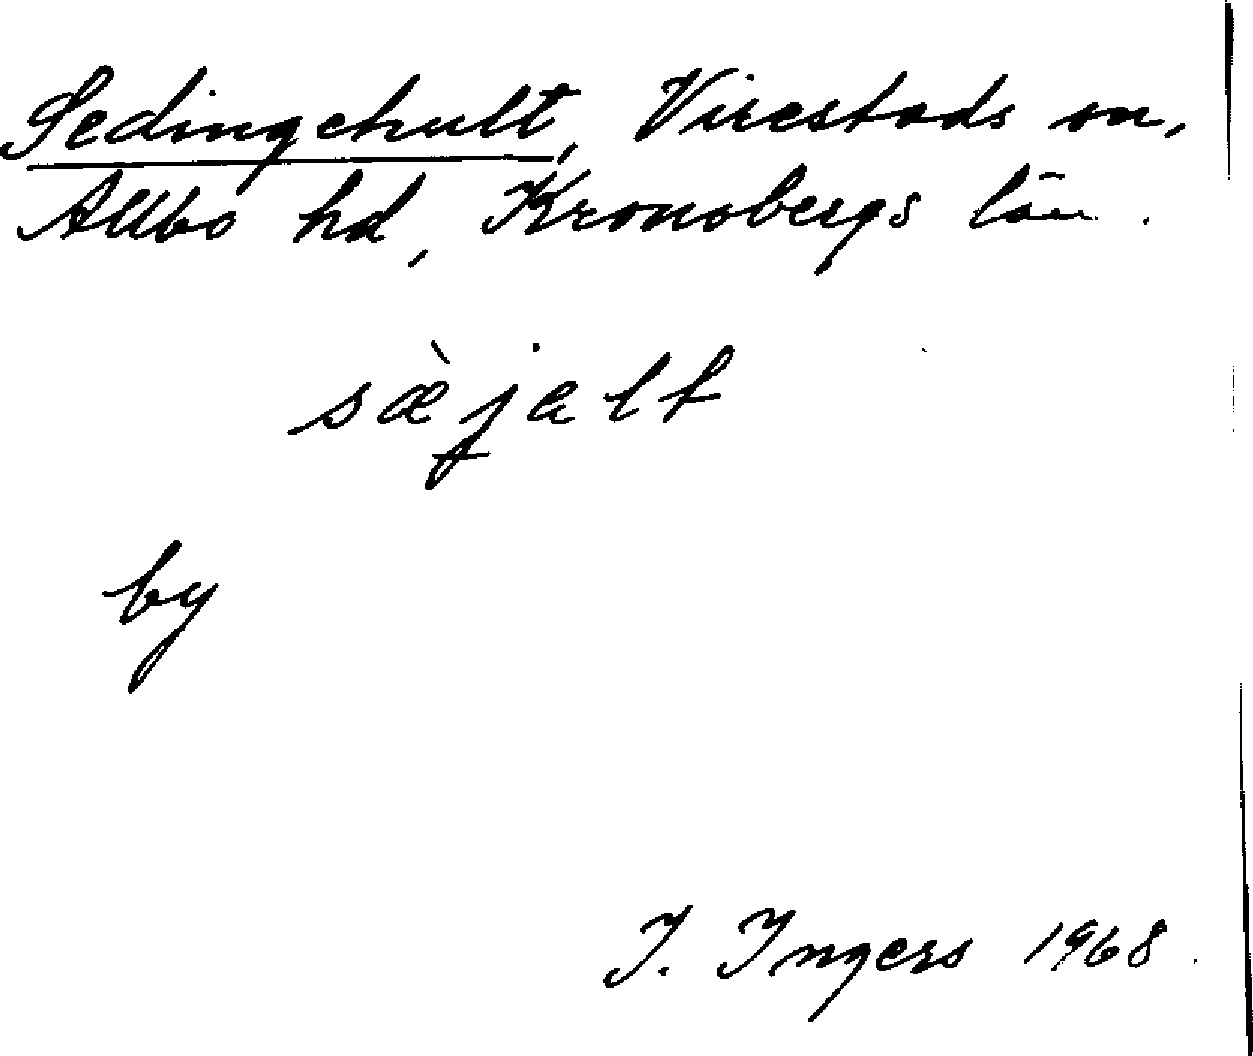 Sedingehult, Virestads sn,
Allbo hd, Kronobergs län.
sæ̀jalt
by
I. Ingers 1968.